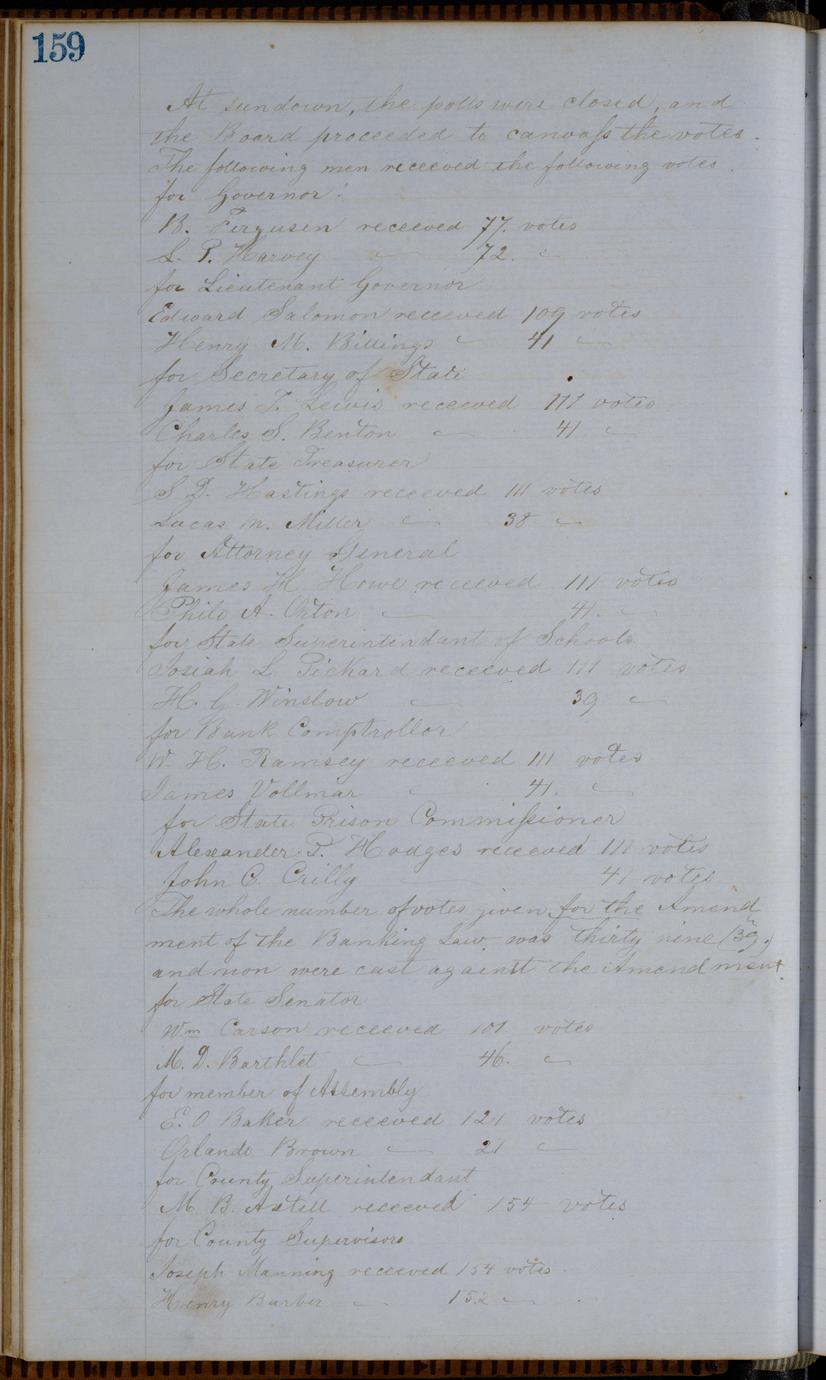 159
At sundown, the polls were closed, and
the Board proceeded to canvass the votes.
The following men receeved the following votes.
for Governor:
B. Fergusen receeved 77. votes
L. P. Harvey " 72. "
for Lieutenant Governor
Edward Salomon receeved 109 votes
Henry M. Billings " 41 "
for Secretary of State
James T. Lewis receeved 111 votes
Charles S. Benton " 41 "
for State Treasurer
S D. Hastings receeved 111 votes
Lucas M. Miller " 38 "
for Attorney General
James H Howe receeved 111 votes
Philo A. Orton " 41. "
for State Superintendant of Schools
Josiah L Pickard receeved 111 votes
H. G. Winslow " 39 "
for Bank Comptrollor
W. H. Ramsey receeved 111 votes
James Vollmar " 41. "
for State Prison Commissioner
Alexander P. Hodges receeved 111 votes
John C. Crilly 41 votes
The whole number of votes given for the Amend
ment of the Banking Law was thirty nine (39.)
and non were cast against the Amendment.
for State Senator
Wm Carson receeved 101 votes
M. D. Barthlet " 46. "
for member of Assembly
E. O Baker receeved 121 votes
Orlando Brown " 21 "
for County Superintendant
M. B. Axtell receeved 154 votes
for County Supervisors
Joseph Manning receeved 154 votes.
Henry Barber " 152 "